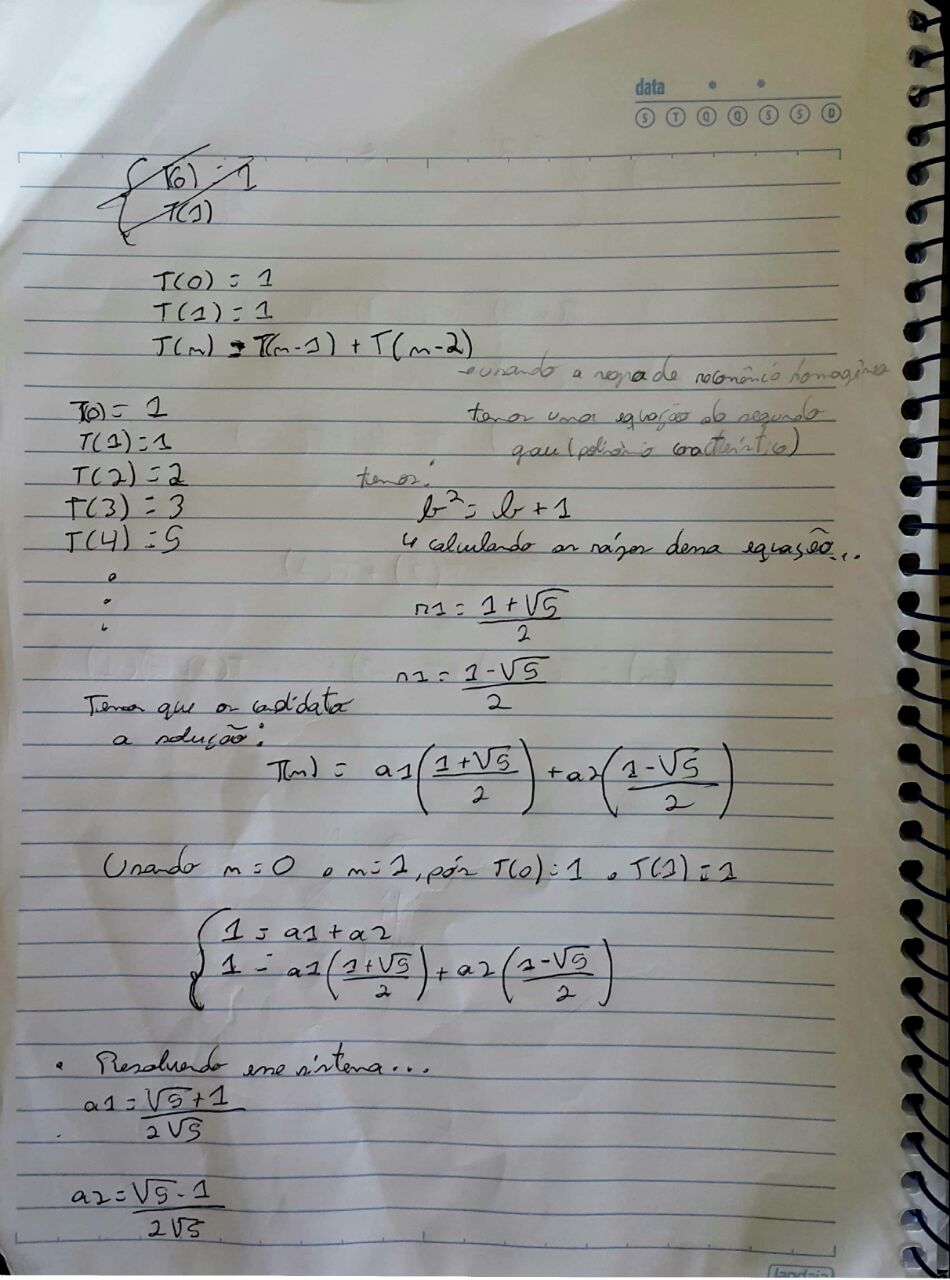 data
S T Q Q S S D
T(0) = 1
T(1)
T(0) = 1
T(1) = 1
T(n) = T(n-1) + T(n-2)
usando a regra de recorrência homogênea
temos uma equação do segundo
grau (polinômio característico)
T(0) = 1
T(1) = 1
T(2) = 2
T(3) = 3
T(4) = 5
temos:
b² = b + 1
↳ calculando as raízes dessa equação...
r1 = (1+√5)/2
r1 = (1-√5)/2
Temos que os candidato
a solução:
T(n) = a1((1+√5)/2) + a2((1-√5)/2)
Usando n=0 e n=1, pois T(0)=1 e T(1)=1
1 = a1 + a2
1 = a1((1+√5)/2) + a2((1-√5)/2)
• Resolvendo esse sistema...
a1 = (√5+1)/(2√5)
a2 = (√5-1)/(2√5)